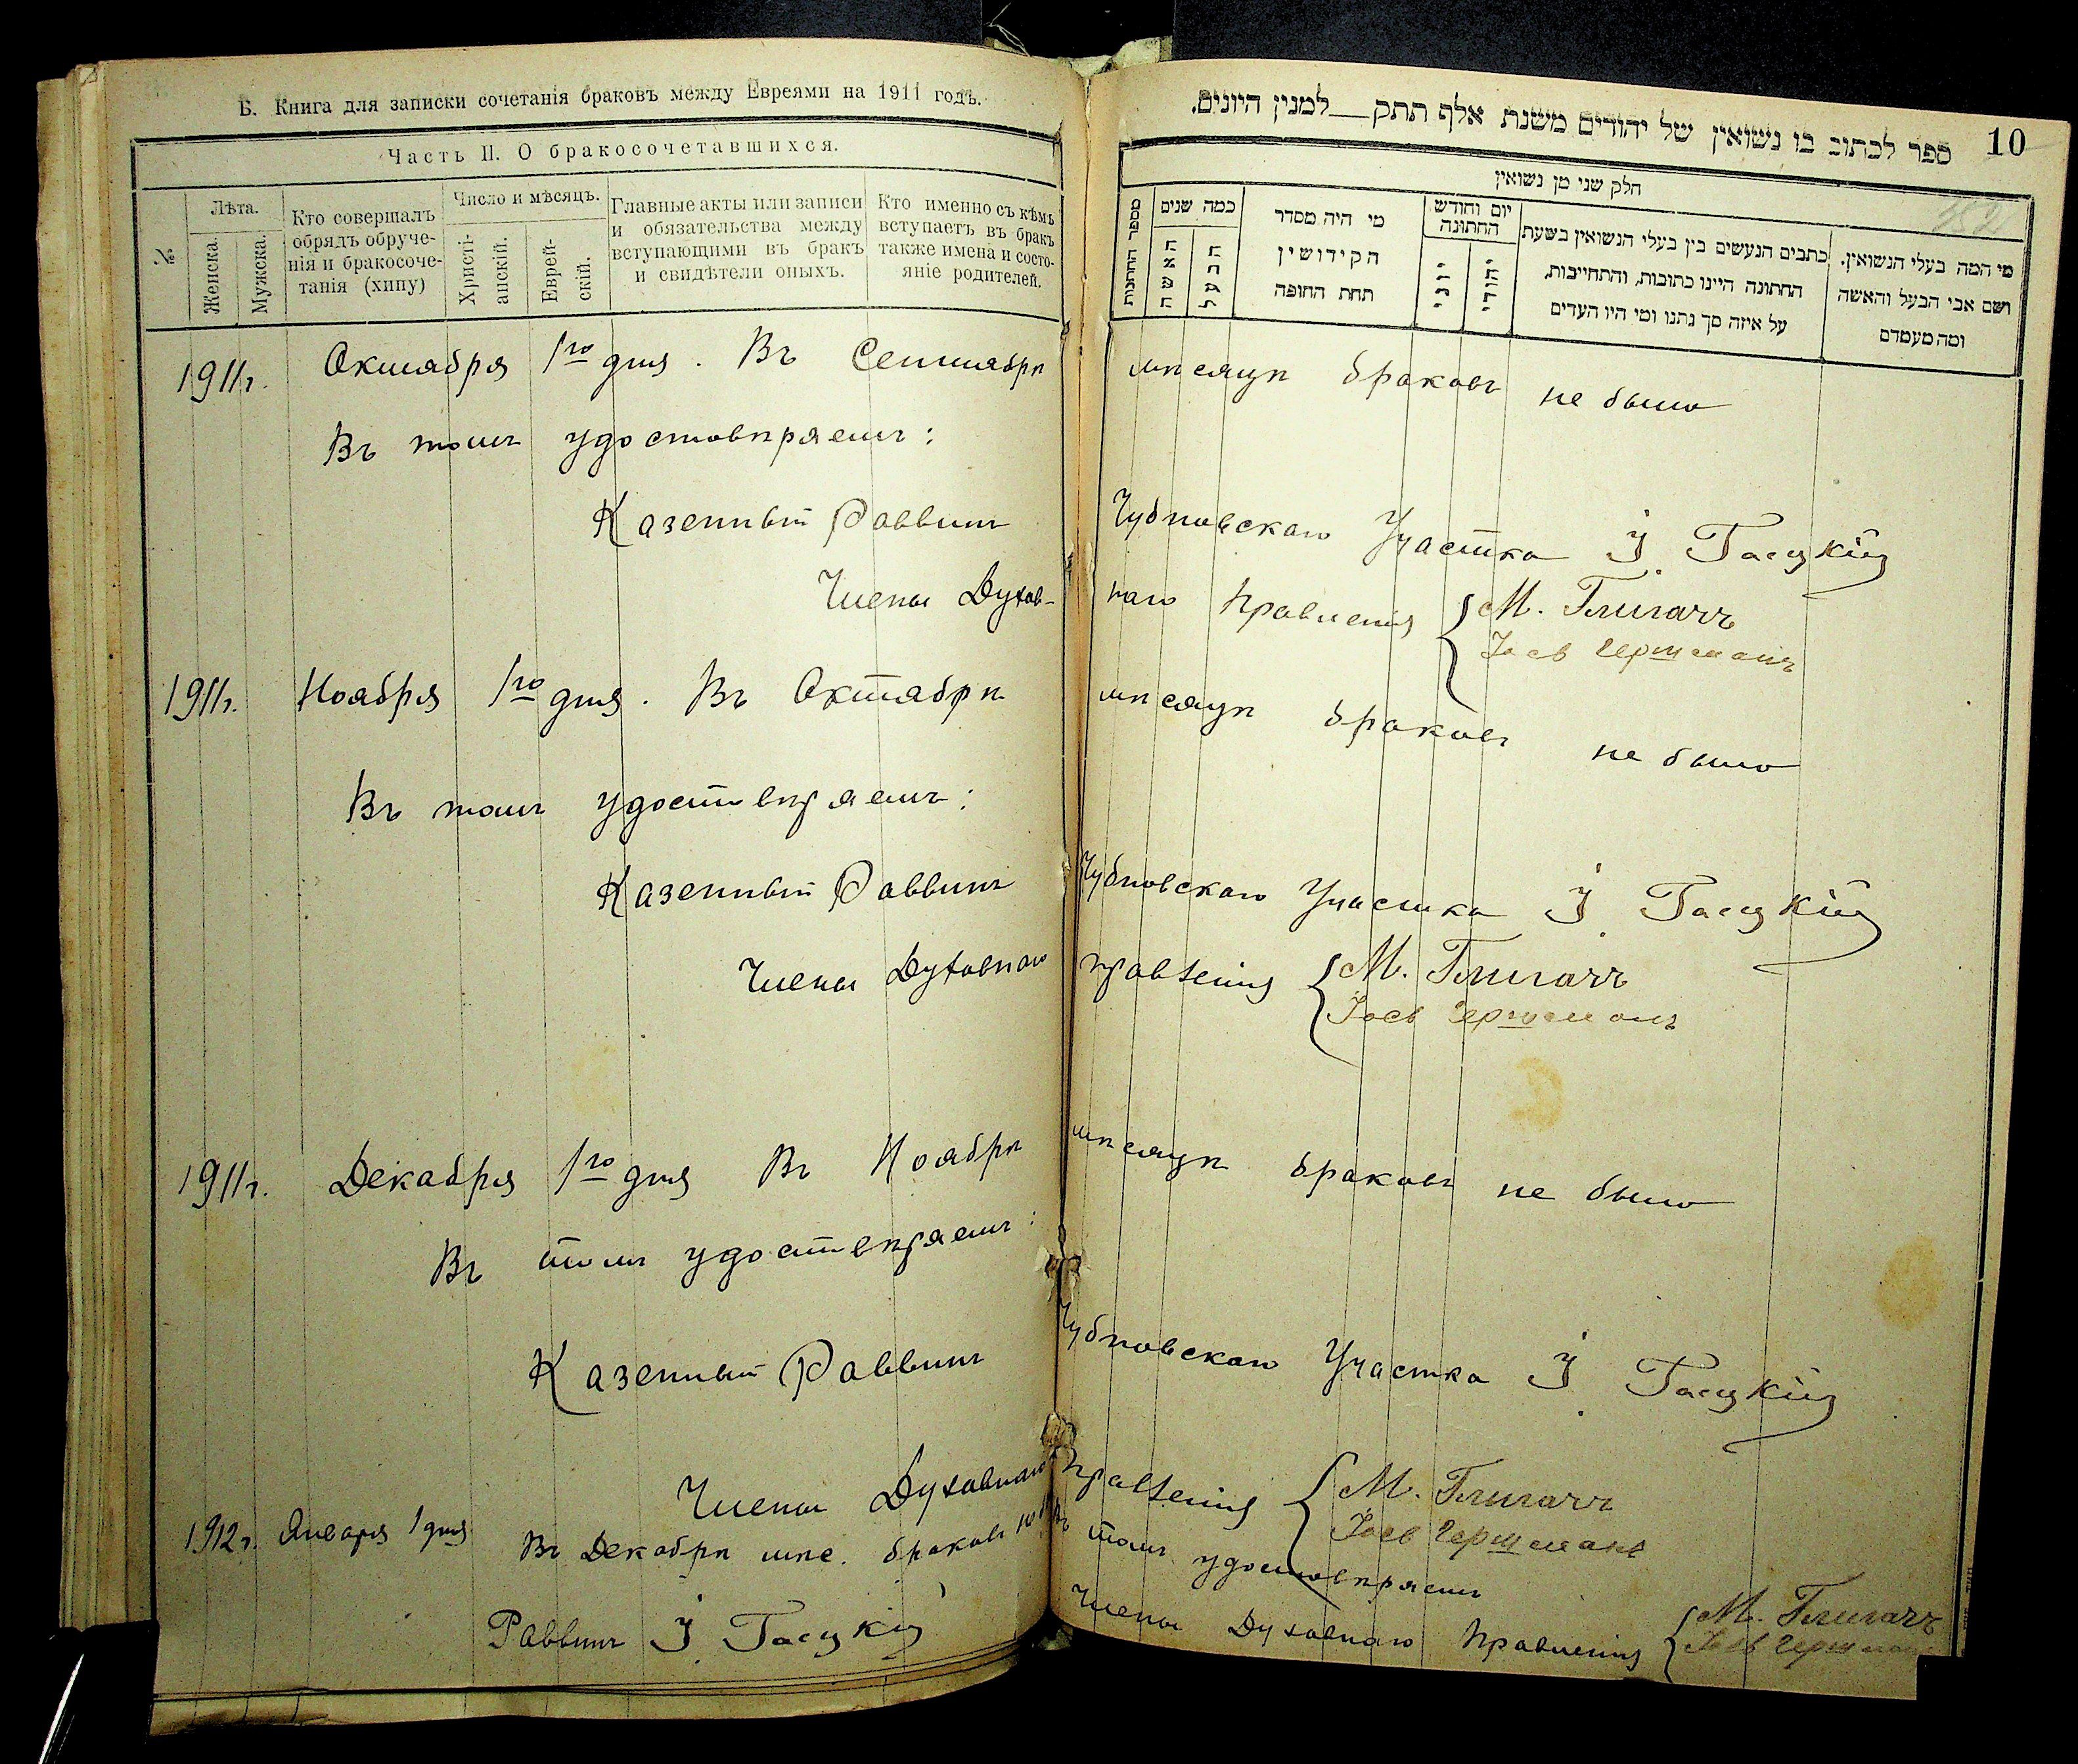 Б. Книга для записки сочетанія браковъ между Евреями на 1911 годъ.
Часть II. О бракосочетавшихся.
№
Лѣта.
Женска.
Мужска.
Кто совершалъ
обрядъ обруче-
нія и бракосоче-
танія (хипу)
Число и мѣсяцъ.
Христі-
анскій.
Еврей-
скій.
Главные акты или записи
и обязательства между
вступающими въ бракъ
и свидѣтели оныхъ.
Кто именно съ кѣмъ
вступаетъ въ бракъ
также имена и состо-
яніе родителей.
ספר לכתוב בו נשואין של יהודים משנת אלף תתק__למנין היונים.
10
חלק שני מן נשואין
מספר החתונות
כמה שנים
האשה
הבעל
מי היה מסדר
הקידושין
תחת החופה
יום וחודש
החתונה
יוני
יהודי
כתבים הנעשים בין בעלי הנשואין בשעת
החתונה היינו כתובות, והתחייבות,
על איזה סך נתנו ומי היו העדים
מי המה בעלי הנשואין.
ושם אבי הבעל והאשה
ומה מעמדם
1911г. Октября 1го дня. Въ Сентябрѣ мѣсяцѣ браковъ не было
Въ томъ удостовѣряемъ:
Казенный Раввинъ Чубновскаго Участка І. Гасцкій
Члены Духов- наго Правленія { М. Глигачъ
Іось Гершманъ
1911г. Ноября 1го дня. Въ Октябрѣ мѣсяцѣ браковъ не было
Въ томъ удоствѣряемъ:
Казенный Раввинъ Чубновскаго Участка І. Гасцкій
Члены Духовнаго правленія { М. Глигачъ
Іось Гершманъ
1911г. Декабря 1го дня Въ Ноябрѣ мѣсяцѣ браковъ не было
Въ томъ удоствѣряемъ:
Казенный Раввинъ Чубновскаго Участка І. Гасцкій
Члены Духовнаго правленія { М. Глигачъ
Іось Гершманъ
1912г. Января 1 дня Въ Декабрѣ мѣс. браковъ томъ удостовѣряемъ
Раввинъ І. Гасцкій Члены Духовнаго Правленія { М. Глигачъ
Іось Гершман